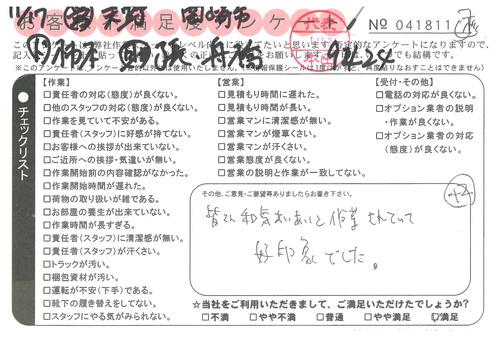 お客様満足度アンケート
№ 041811
代表
【作業】
□責任者の対応(態度)が良くない。
□他のスタッフの対応(態度)が良くない。
□作業を見ていて不安がある。
□責任者(スタッフ)に好感が持てない。
□お客様への挨拶が出来ていない。
□ご近所への挨拶・気遣いが無い。
□作業開始前の内容確認がなかった。
□作業開始時間が遅れた。
□荷物の取り扱いが雑である。
□お部屋の養生が出来ていない。
□作業時間が長すぎる。
□責任者(スタッフ)に清潔感が無い。
□責任者(スタッフ)が汗くさい。
□トラックが汚い。
□梱包資材が汚い。
□運転が不安(下手)である。
□靴下の履き替えをしてない。
□スタッフにやる気がみられない。
【営業】
□見積もり時間に遅れた。
□見積もり時間が長い。
□営業マンに清潔感が無い。
□営業マンが煙草くさい。
□営業マンが汗くさい。
□営業態度が良くない。
□営業の説明と作業が一致してない。
【受付・その他】
□電話の対応が良くない。
□オプション業者の説明
・作業が良くない。
□オプション業者の対応
(態度)が良くない。
●チェックリスト
その他、ご意見・ご要望等ありましたらお書き下さい。
皆さん和気あいあいと作業されていて
好印象でした。
☆当社をご利用いただきまして、ご満足いただけたでしょうか?
□不満 □やや不満 □普通 □やや満足 ☑満足